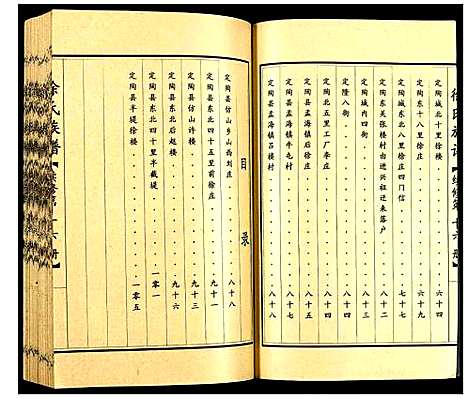 徐氏族谱【续修第十六册】
定陶城北十里徐楼 六十四
定陶东十八里徐庄 六十九
定陶城东北八里徐庄四门信 七十七
定陶东关张楼村由进兴祖迁来落户 八十二
定陶城内四街 八十三
定隆八街 八十三
定陶北五里工厂李庄 八十三
定陶县孟海镇后徐庄 八十四
定陶县孟海镇牛屯村 八十七
定陶县孟海镇吕楼村 八十八
目录
定陶县仿山乡山西刘庄 八十八
定陶县东北四十五里前徐庄 九十一
定陶县仿山许楼 九十三
定陶县东北后赵楼 九十六
定陶县东北四十里半截堤 一零一
定陶县半堤徐楼 一零五
徐氏族谱【续修第十六册】